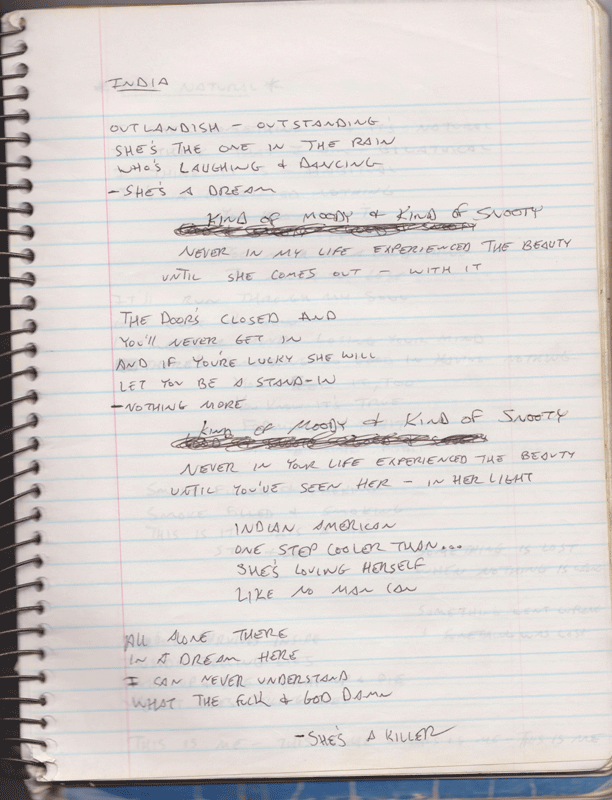 INDIA
OUTLANDISH - OUTSTANDING
SHE'S THE ONE IN THE RAIN
WHO'S LAUGHING & DANCING
-SHE'S A DREAM
KIND OF MOODY & KIND OF SNOOTY
NEVER IN MY LIFE EXPERIENCED THE BEAUTY
UNTIL SHE COMES OUT - WITH IT
THE DOOR'S CLOSED AND
YOU'LL NEVER GET IN
AND IF YOU'RE LUCKY SHE WILL
LET YOU BE A STAND-IN
-NOTHING MORE
KIND OF MOODY & KIND OF SNOOTY
NEVER IN YOUR LIFE EXPERIENCED THE BEAUTY
UNTIL YOU'VE SEEN HER - IN HER LIGHT
INDIAN AMERICAN
ONE STEP COOLER THAN...
SHE'S LOVING HERSELF
LIKE NO MAN CAN
ALL ALONE THERE
IN A DREAM HERE
I CAN NEVER UNDERSTAND
WHAT THE FUCK & GOD DAMN
-SHE'S A KILLER